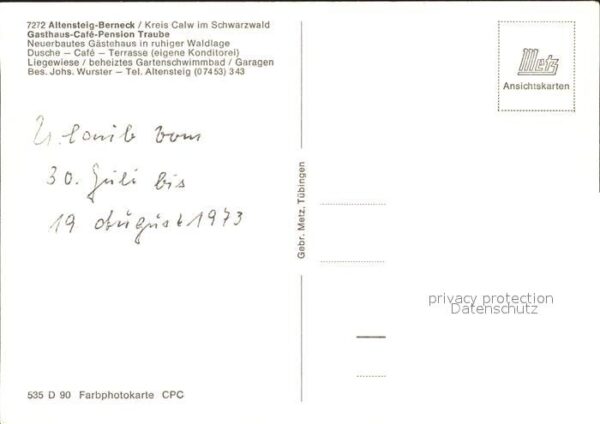 7272 Altensteig-Berneck / Kreis Calw im Schwarzwald
Gasthaus-Café-Pension Traube
Neuerbautes Gästehaus in ruhiger Waldlage
Dusche – Café – Terrasse (eigene Konditorei)
Liegewiese / beheiztes Gartenschwimmbad / Garagen
Bes. Johs. Wurster – Tel. Altensteig (07453) 343
Metz
Ansichtskarten
Urlaub vom
30. Juli bis
19 August 1973
Gebr. Metz, Tübingen
privacy protection
Datenschutz
535 D 90 Farbphotokarte CPC